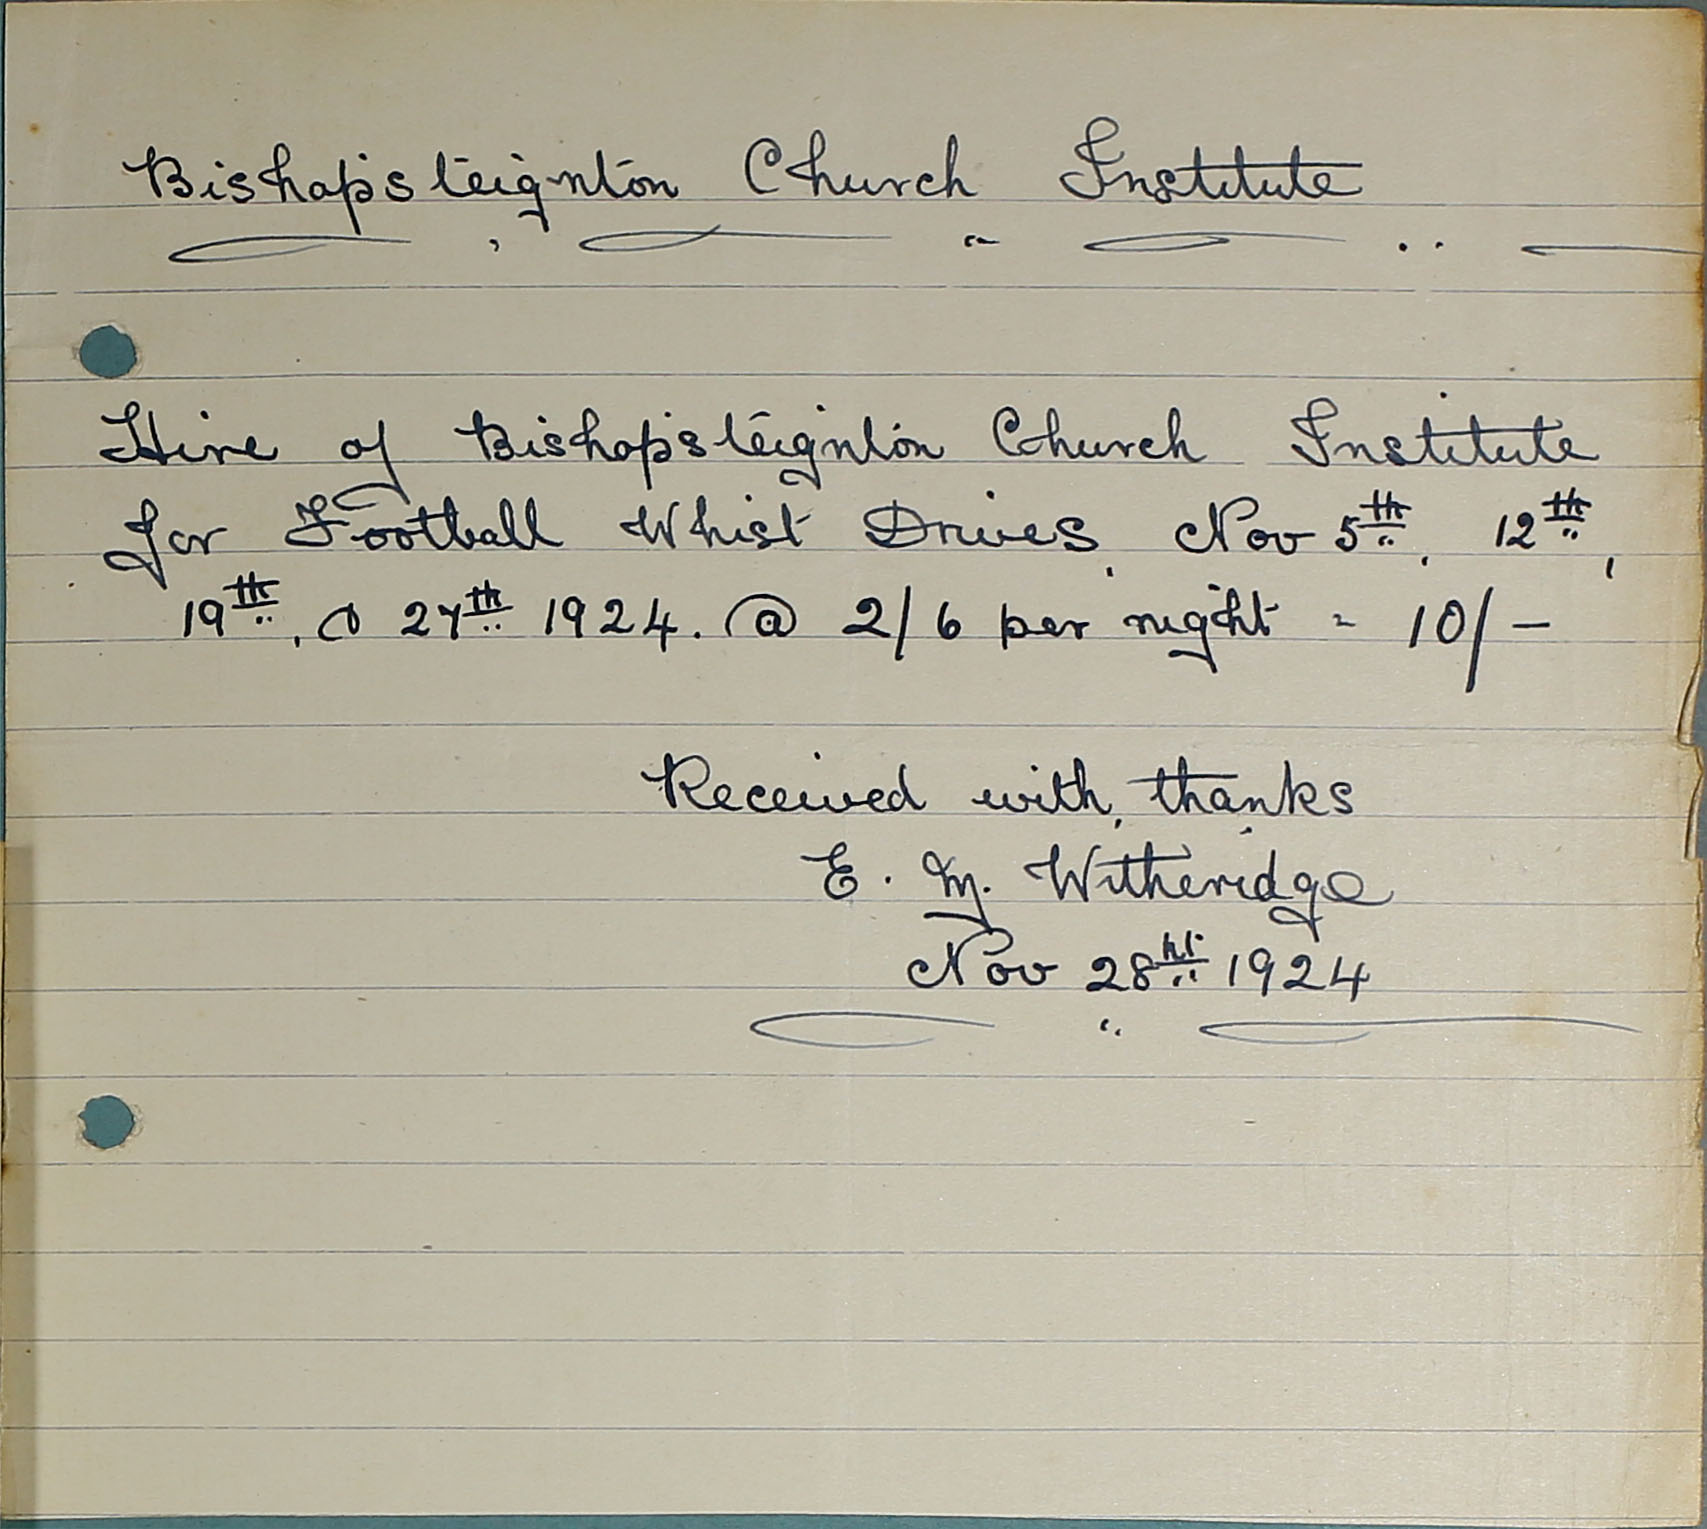 Bishopsteignton Church Institute
Hire of Bishopsteignton Church Institute
for Football Whist Drives, Nov 5th, 12th,
19th, & 27th 1924. @ 2/6 per night = 10/-
Received with thanks
E. M. Witheridge
Nov 28th 1924